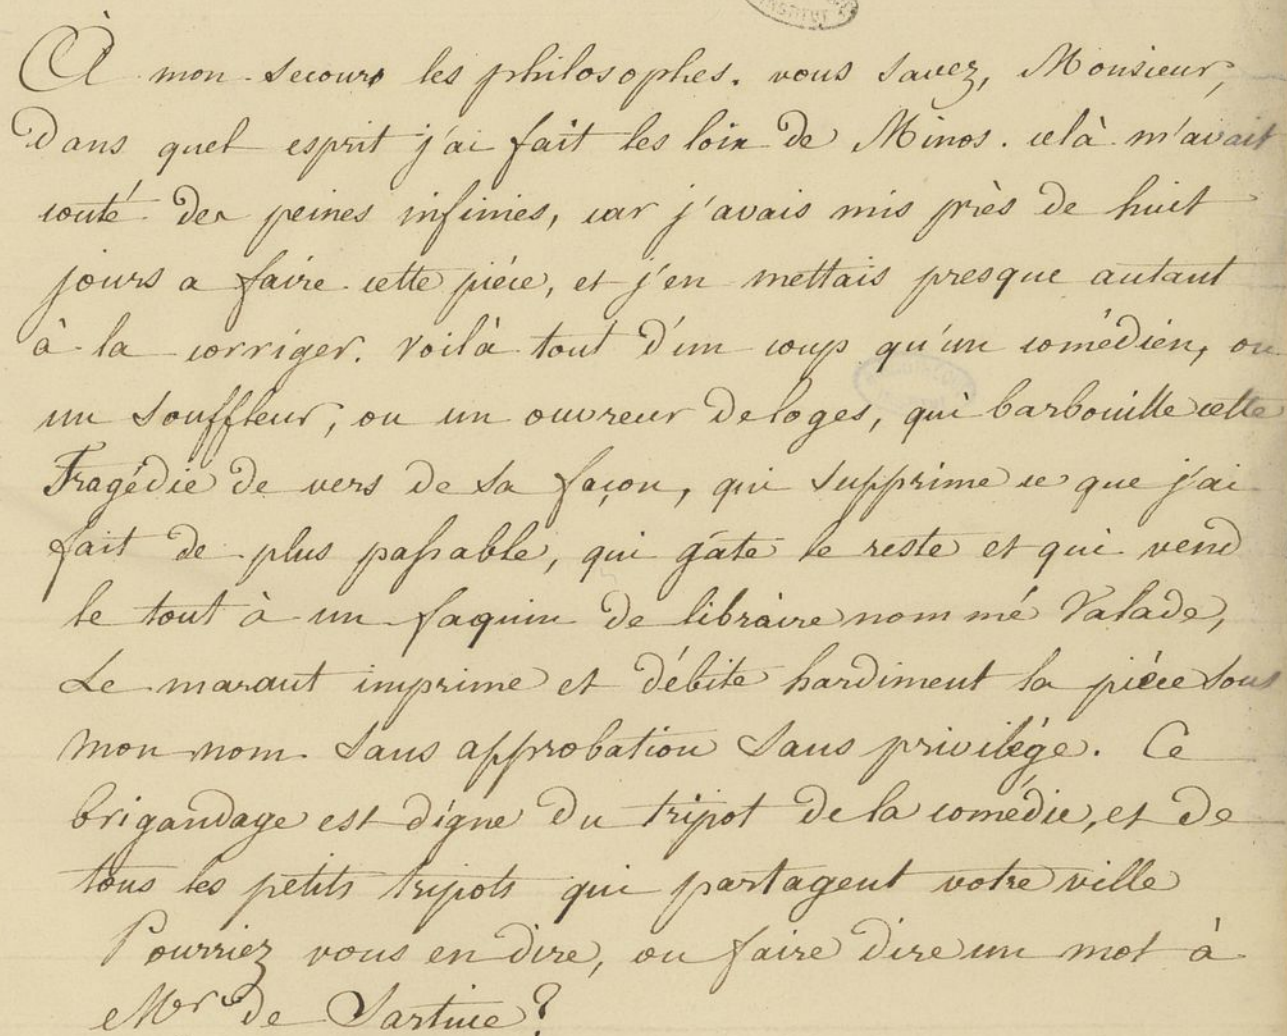 À mon secours les philosophes. vous savez, Monsieur,
dans quel esprit j'ai fait les loix de Minos. celà m'avait
couté des peines infinies, car j'avais mis près de huit
jours a faire cette piéce, et j'en mettais presque autant
à la corriger. voilà tout d'un coup qu'un comédien, ou
un souffleur, ou un ouvreur de loges, qui barbouille cette
Tragédie de vers de sa façon, qui supprime ce que j'ai
fait de plus passable, qui gâte le reste et qui vend
le tout à un faquin de libraire nommé Valade,
Le maraut imprime et débite hardiment la piéce sous
mon nom sans approbation sans privilége. Ce
brigandage est digne du tripot de la comédie, et de
tous les petits tripots qui partagent votre ville
Pourriez vous en dire, ou faire dire un mot à
Mr de Sartine?